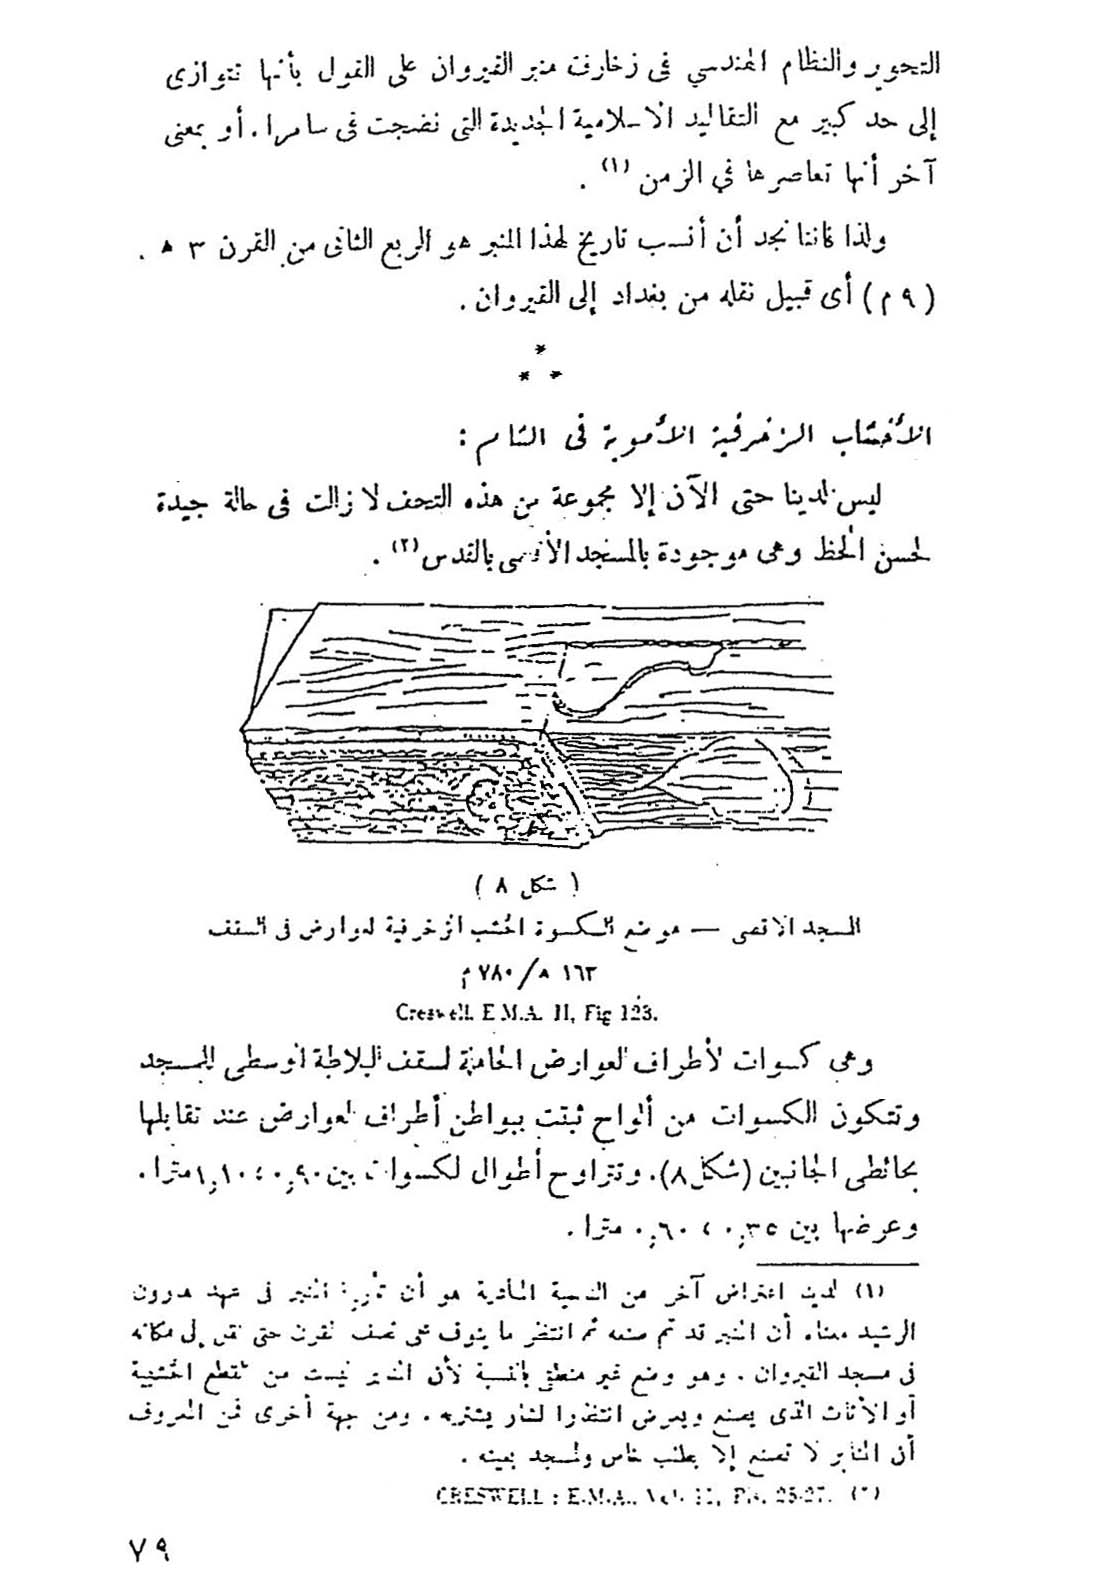 التحوير والنظام الهندسي فى زخارف منبر القيروان على القول بأنها تتوازى
إلى حد كبير مع التقاليد الاسلامية الجديدة التى نضجت فى سامرا. أو بمعنى
آخر أنها تعاصرها في الزمن (١) .
ولذا فاننا نجد أن أنسب تاريخ لهذا المنبر هو الربع الثانى من القرن ٣ هـ .
( ٩ م ) أى قبيل نقله من بغداد إلى القيروان .
* * *
الأخشاب الزخرفية الأموية فى الشام :
ليس لدينا حتى الآن إلا مجموعة من هذه التحف لا زالت فى حالة جيدة
لحسن الحظ وهى موجودة بالمسجد الأقصى بالقدس (٢) .
( شكل ٨ )
المسجد الاقصى — موضع الكسوة الخشب الزخرفية لعوارض فى السقف
١٦٣ هـ / ٧٨٠ م
Creswell. E.M.A. II, Fig 123.
وهى كسوات لأطراف العوارض الحاملة لسقف البلاطة الوسطى للمسجد
وتتكون الكسوات من ألواح ثبتت ببواطن أطراف العوارض عند تقابلها
بحائطى الجانبين (شكل ٨). وتتراوح أطوال الكسوات بين ٠,٩٠ ؛ ١,١٠ مترا .
وعرضها بين ٠,٣٥ ؛ ٠,٦٠ مترا .
(١) لدينا اعتراض آخر من الناحية المادية هو أن تأريخ المنبر فى عهد هارون
الرشيد معناه أن المنبر قد تم صنعه ثم انتظر ما ينوف على نصف القرن حتى نقل إلى مكانه
فى مسجد القيروان . وهو وضع غير منطقى بالنسبة لأن المنابر ليست من القطع الخشبية
أو الأثاث الذى يصنع ويعرض انتظارا لمن يشتريه . ومن جهة أخرى فمن المعروف
أن المنابر لا تصنع إلا بطلب خاص ولمسجد بعينه .
(٢) CRESWELL : E.M.A., Vol. II, Pls. 25-27.
٧٩